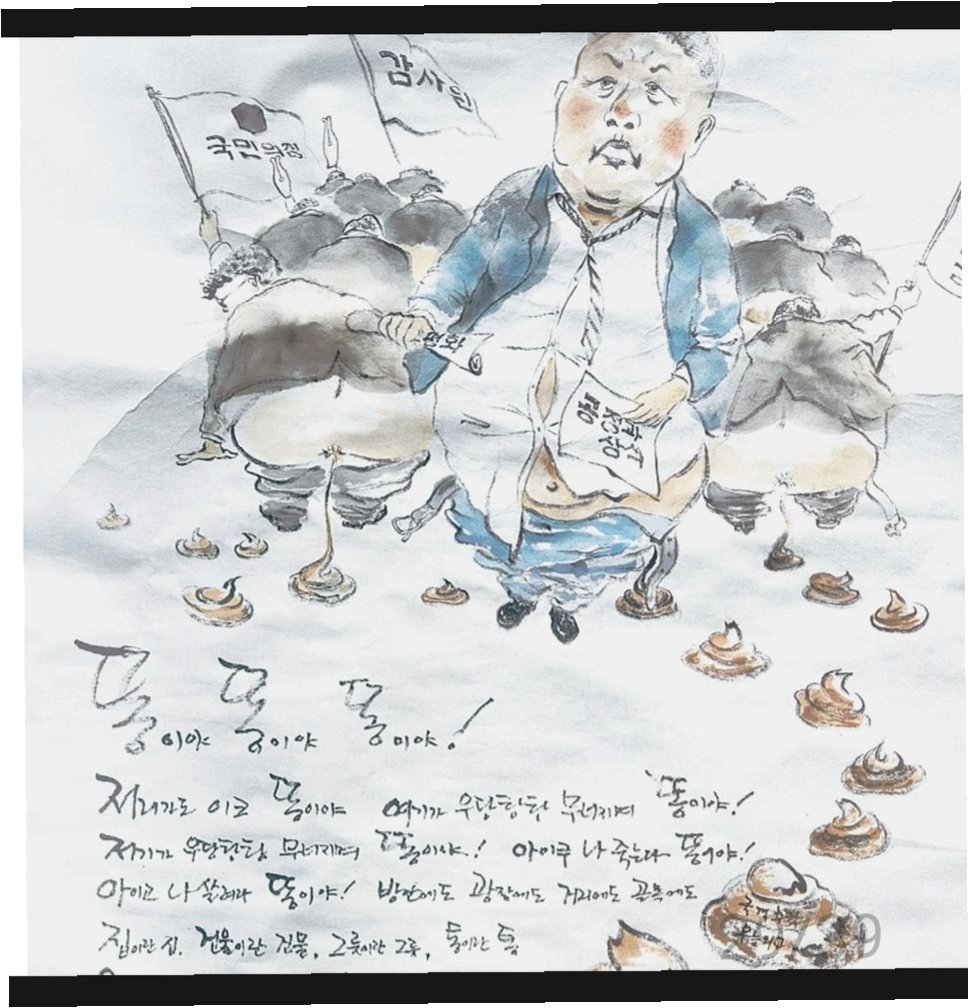 감사원
국민의정
평화
남북정상
똥이야 똥이야 똥이야!
저리가도 이크 똥이야 여기가 우당탕탕 무너지며 똥이야!
저기가 우당탕탕 무너지며 똥이야! 아이쿠 나 죽는다 똥이야!
아이고 나 살려라 똥이야! 방안에도 광장에도 거리에도 골목에도
집이란 집, 건물이란 건물, 그릇이란 그릇, 통이란 통